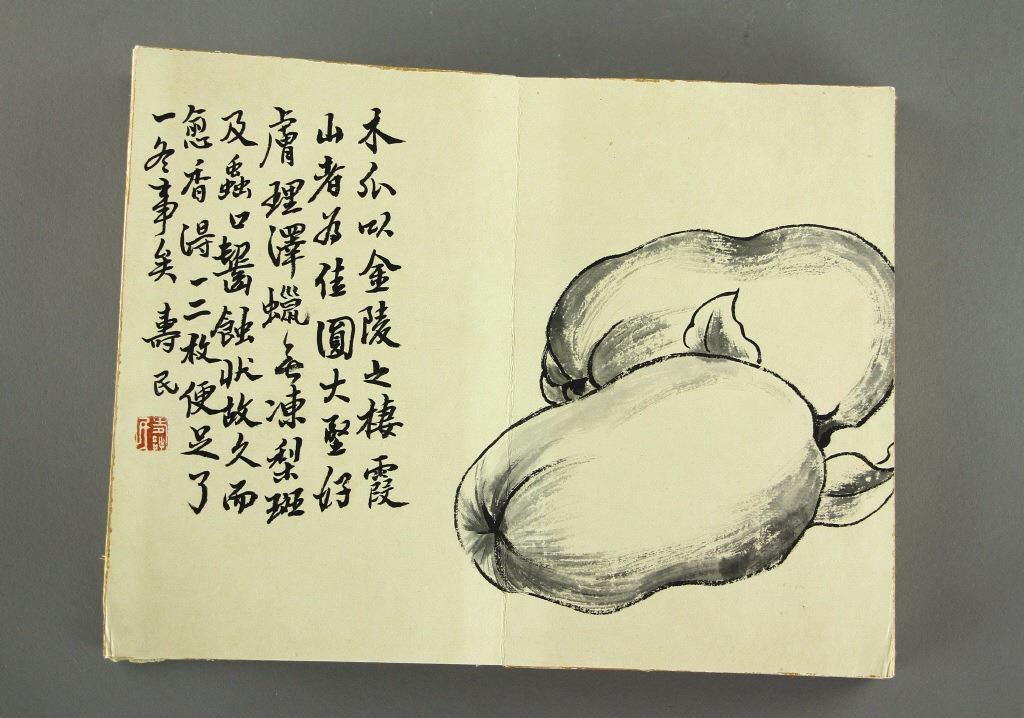 木瓜以金陵之棲霞
山者為佳圓大堅好
膚理澤蠟無凍梨斑
及蟲口齧蝕狀故久而
愈香得一二枚便足了
一冬事矣 壽民